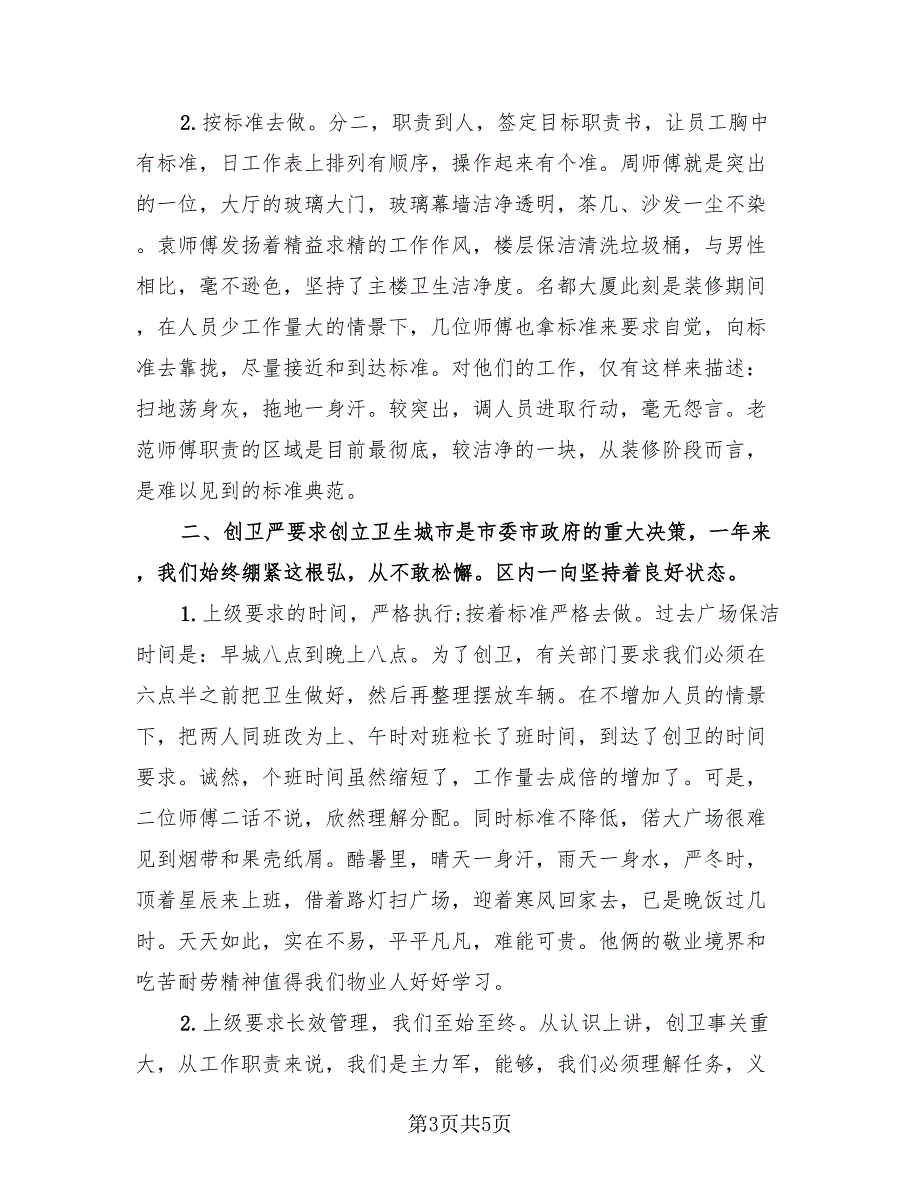 2. 按标准去做。分二，职责到人，签定目标职责书，让员工胸中
有标准，日工作表上排列有顺序，操作起来有个准。周师傅就是突出
的一位，大厅的玻璃大门，玻璃幕墙洁净透明，茶几、沙发一尘不染
。袁师傅发扬着精益求精的工作作风，楼层保洁清洗垃圾桶，与男性
相比，毫不逊色，坚持了主楼卫生洁净度。名都大厦此刻是装修期间
，在人员少工作量大的情景下，几位师傅也拿标准来要求自觉，向标
准去靠拢，尽量接近和到达标准。对他们的工作，仅有这样来描述：
扫地荡身灰，拖地一身汗。较突出，调人员进取行动，毫无怨言。老
范师傅职责的区域是目前最彻底，较洁净的一块，从装修阶段而言，
是难以见到的标准典范。
二、创卫严要求创立卫生城市是市委市政府的重大决策，一年来
，我们始终绷紧这根弘，从不敢松懈。区内一向坚持着良好状态。
1. 上级要求的时间，严格执行;按着标准严格去做。过去广场保洁
时间是：早城八点到晚上八点。为了创卫，有关部门要求我们必须在
六点半之前把卫生做好，然后再整理摆放车辆。在不增加人员的情景
下，把两人同班改为上、午时对班粒长了班时间，到达了创卫的时间
要求。诚然，个班时间虽然缩短了，工作量去成倍的增加了。可是，
二位师傅二话不说，欣然理解分配。同时标准不降低，偌大广场很难
见到烟带和果壳纸屑。酷暑里，晴天一身汗，雨天一身水，严冬时，
顶着星辰来上班，借着路灯扫广场，迎着寒风回家去，已是晚饭过几
时。天天如此，实在不易，平平凡凡，难能可贵。他俩的敬业境界和
吃苦耐劳精神值得我们物业人好好学习。
2. 上级要求长效管理，我们至始至终。从认识上讲，创卫事关重
大，从工作职责来说，我们是主力军，能够，我们必须理解任务，义
第3页共5页